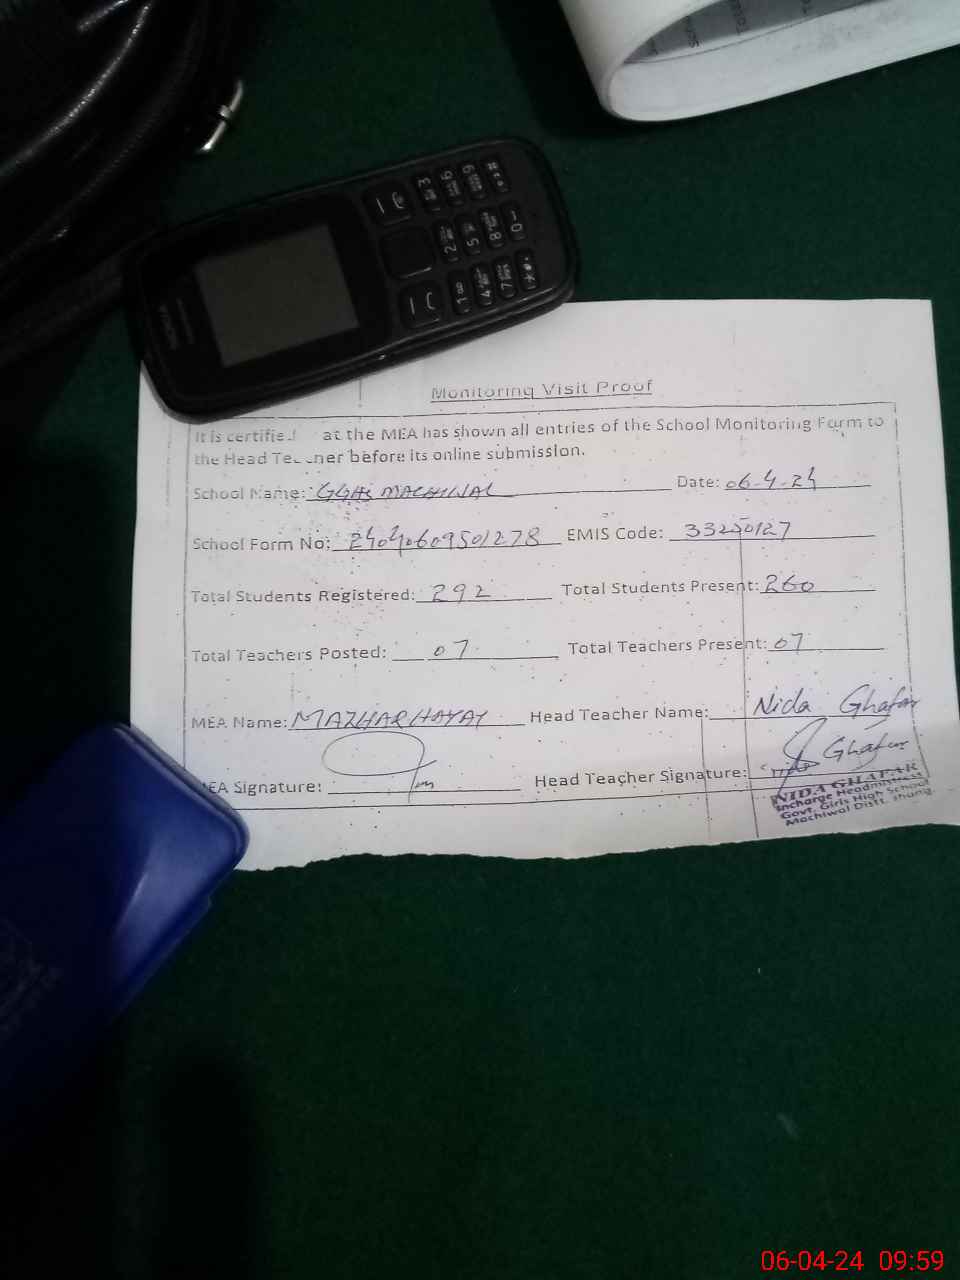 Monitoring Visit Proof
It is certified at the MEA has shown all entries of the School Monitoring Form to
the Head Teacher before its online submission.
School Name: GGHS MACHIWAL Date: 06-4-24
School Form No: 24040609501278 EMIS Code: 33230127
Total Students Registered: 292 Total Students Present: 260
Total Teachers Posted: 07 Total Teachers Present: 07
MEA Name: MAZHAR HAYAT Head Teacher Name: Nida Ghafar
MEA Signature: Head Teacher Signature: Nida Ghafar
NIDA GHAFAR
Incharge Headmistress
Govt. Girls High School
Machiwal Distt. Jhang
06-04-24 09:59